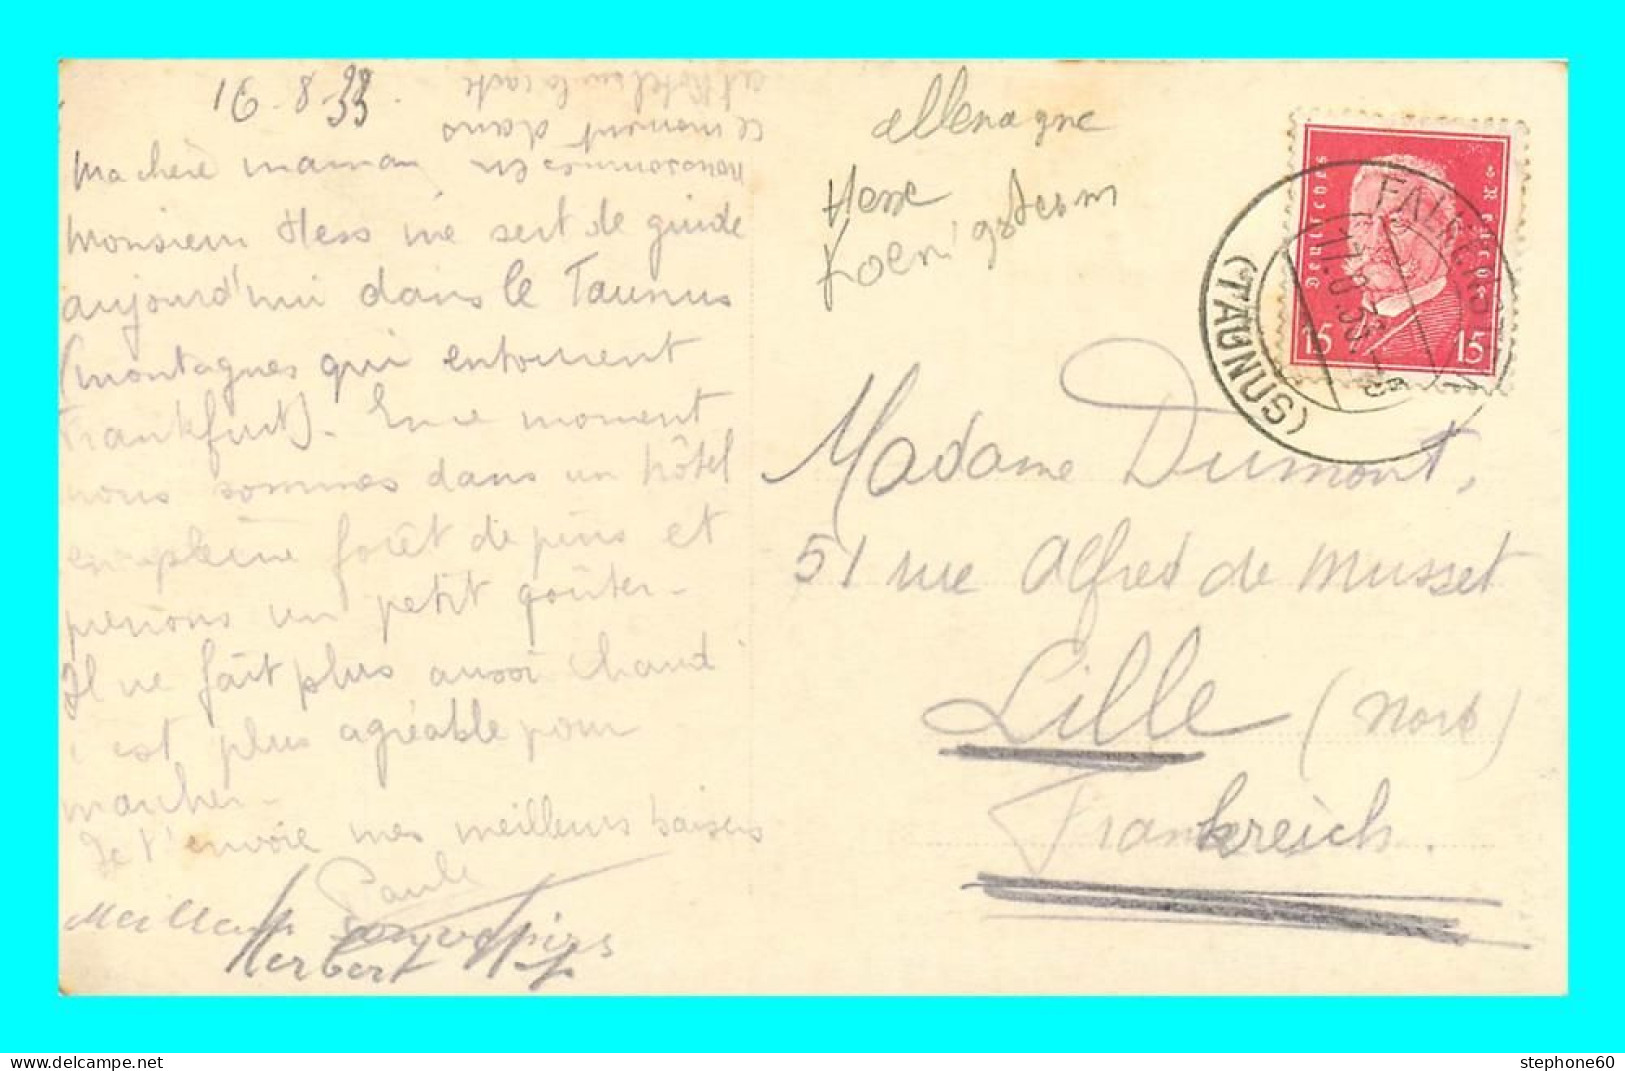 16-8-33
nous sommes en
ce moment dans
cet hôtel sur la carte
Ma chère maman
Monsieur Hess me sert de guide
aujourd'hui dans le Taunus
(montagnes qui entourent
Frankfurt). En ce moment
nous sommes dans un hôtel
en pleine forêt de pins et
prenons un petit goûter.
Il ne fait plus aussi chaud
c'est plus agréable pour
marcher.
Je t'envoie mes meilleurs baisers
Paule
Meilleurs souvenirs
Herbert Hess
allemagne
Hesse
Koenigstein
Deutsches Reich
15 15
FALKENSTEIN
(TAUNUS)
Madame Dumont,
51 rue Alfred de Musset
Lille (Nord)
Frankreich.
stephone60